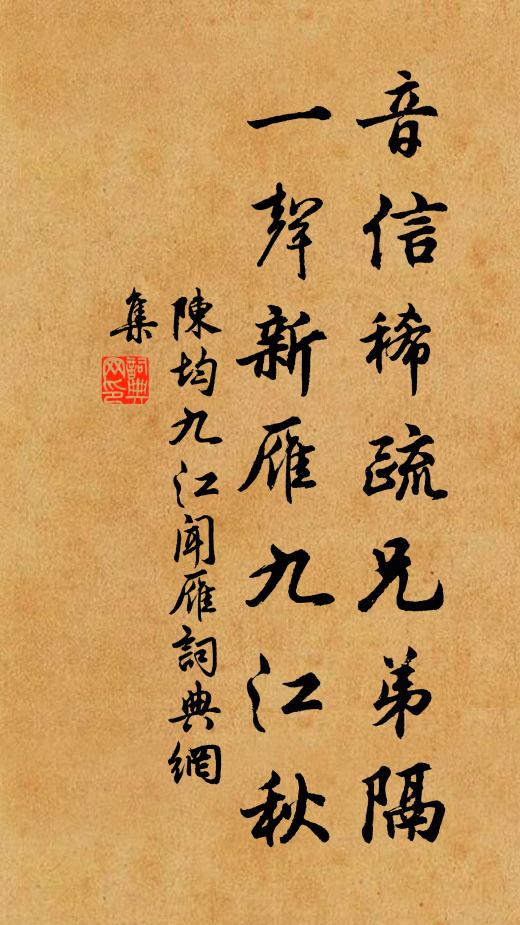 音信稀疏兄弟隔
一聲新雁九江秋
陳均九江聞雁詞典網
集
詞典網印